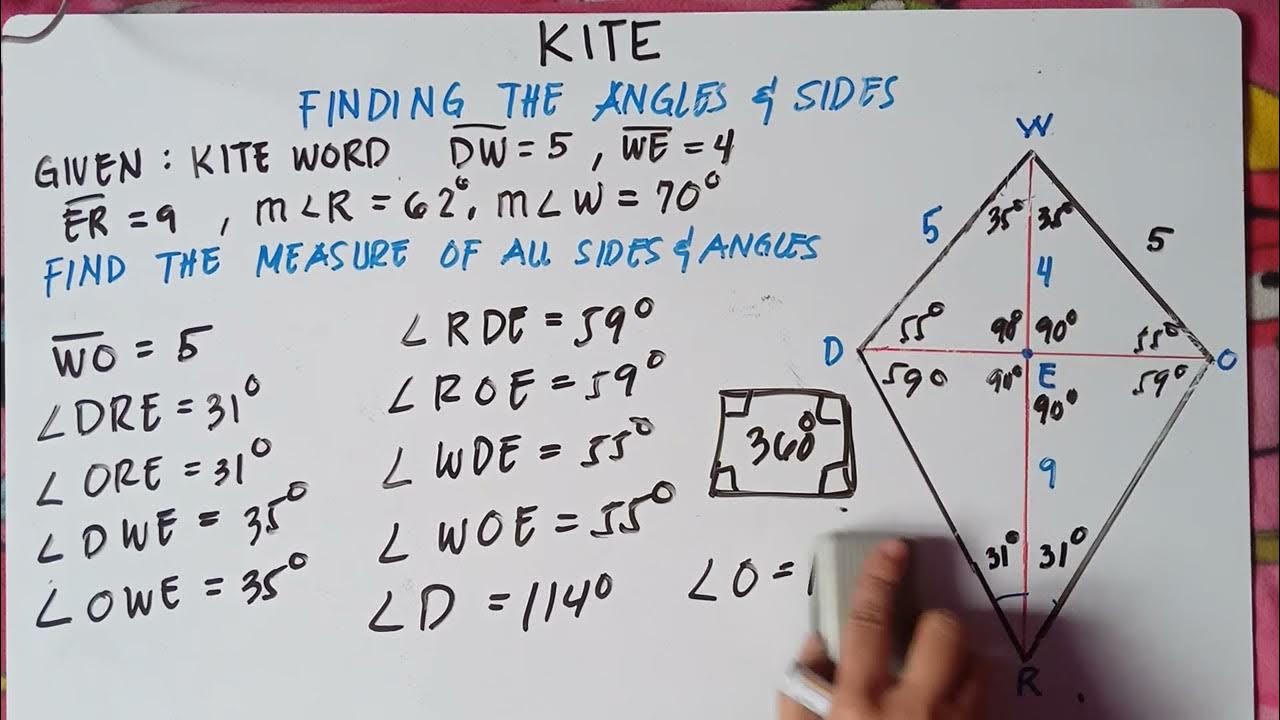 KITE
FINDING THE ANGLES & SIDES
GIVEN : KITE WORD DW = 5 , WE = 4
ER = 9 , m∠R = 62°, m∠W = 70°
FIND THE MEASURE OF ALL SIDES & ANGLES
WO = 5
∠DRE = 31°
∠ORE = 31°
∠DWE = 35°
∠OWE = 35°
∠RDE = 59°
∠ROE = 59°
∠WDE = 55°
∠WOE = 55°
∠D = 114°
360°
∠O = 1
W
35° 35°
5 5
4
55° 90° 90° 55°
D E O
590 90° 90° 59°
9
31° 31°
R